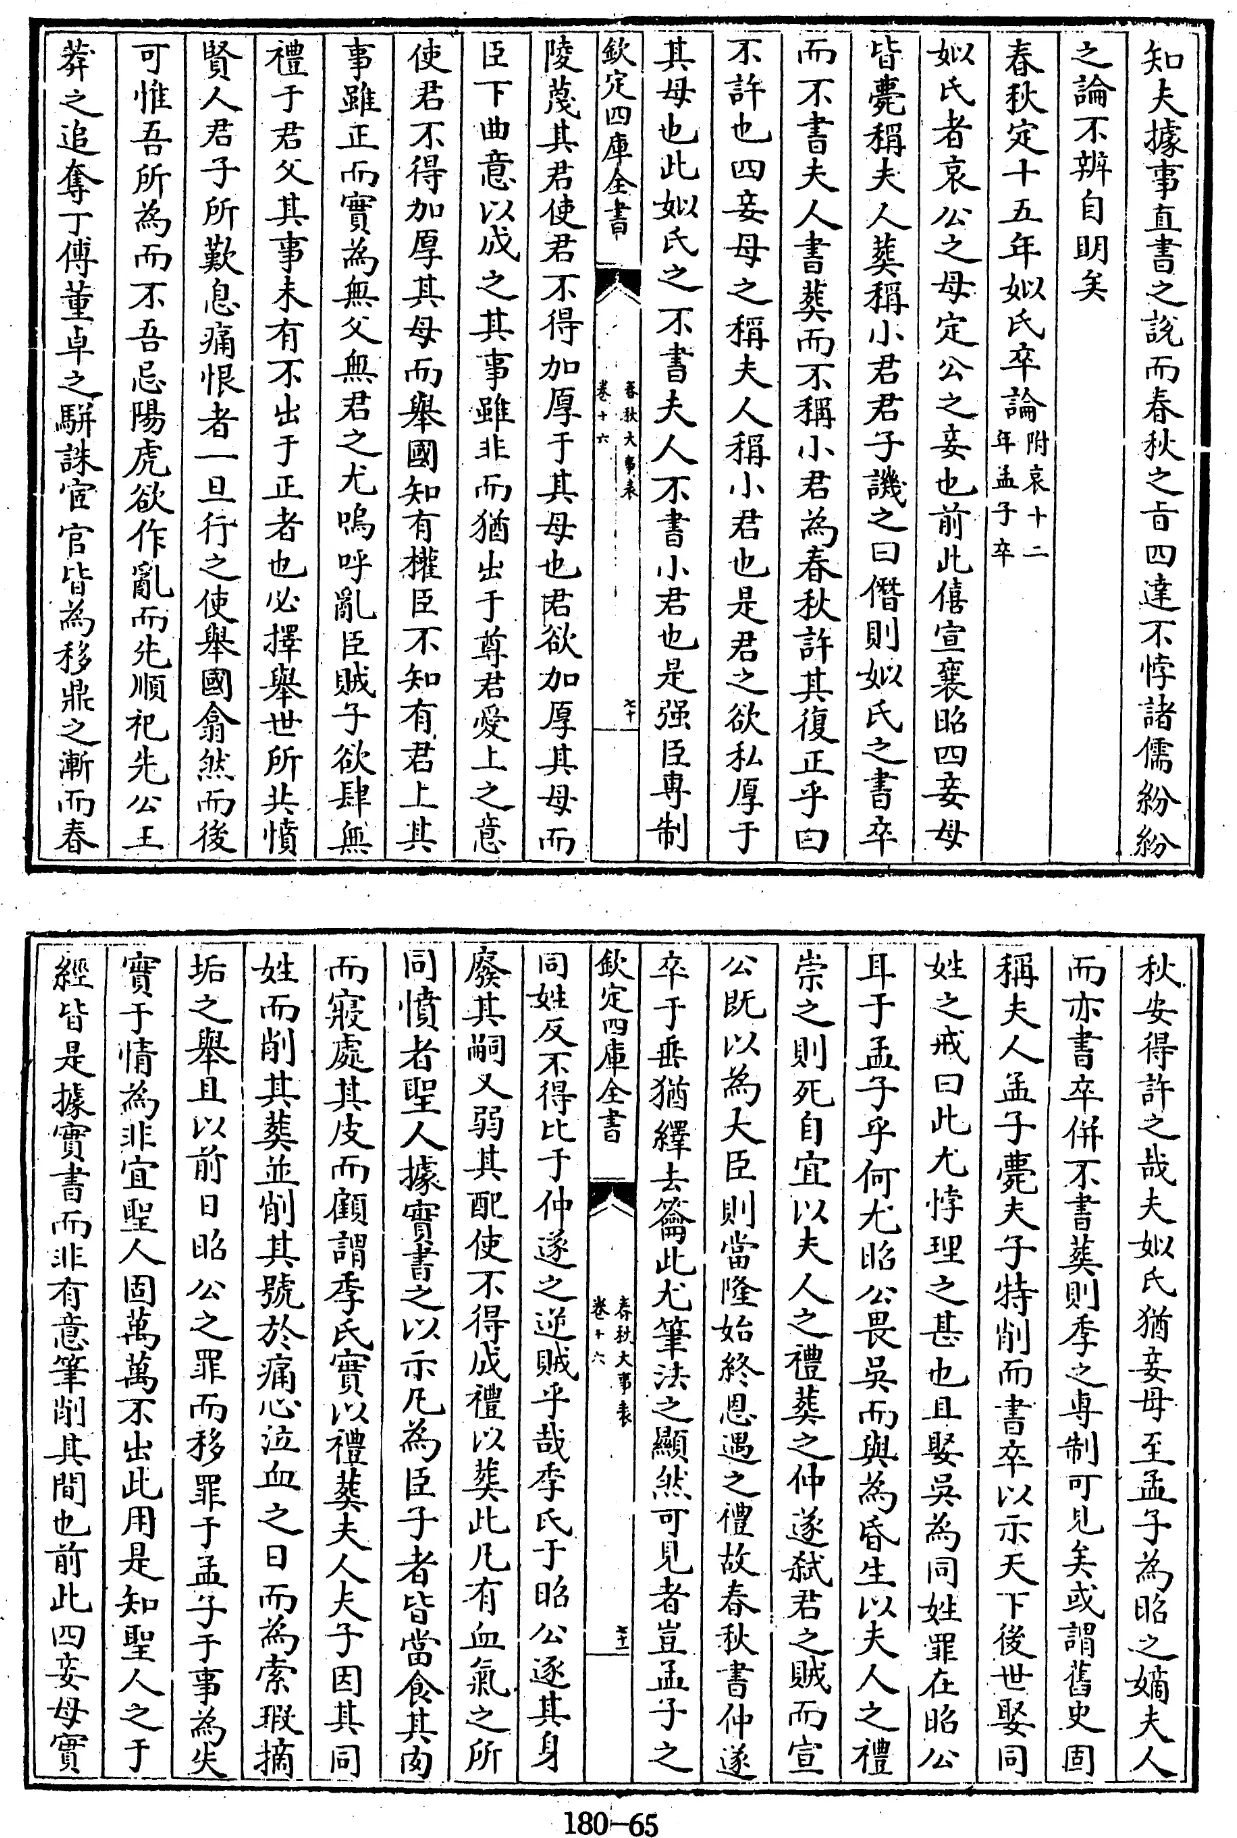 知夫據事直書之說而春秋之㫖四達不悖諸儒紛紛
之論不辨自明矣
春秋定十五年姒氏卒論附哀十二年孟子卒
姒氏者哀公之母定公之妾也前此僖宣襄昭四妾母
皆薨稱夫人葬稱小君君子譏之曰僭則姒氏之書卒
而不書夫人書葬而不稱小君為春秋許其復正乎曰
不許也四妾母之稱夫人稱小君也是君之欲私厚于
其母也此姒氏之不書夫人不書小君也是强臣專制
欽定四庫全書
春秋大事表
卷十六
七十
陵蔑其君使君不得加厚于其母也君欲加厚其母而
臣下曲意以成之其事雖非而猶出于尊君愛上之意
使君不得加厚其母而舉國知有權臣不知有君上其
事雖正而實為無父無君之尤嗚呼亂臣賊子欲肆無
禮于君父其事未有不出于正者也必擇舉世所共憤
賢人君子所歎息痛恨者一旦行之使舉國翕然而後
可惟吾所為而不吾忌陽虎欲作亂而先順祀先公王
莽之追奪丁傅董卓之駢誅宦官皆為移鼎之漸而春
秋安得許之哉夫姒氏猶妾母至孟子為昭之嫡夫人
而亦書卒併不書葬則季之專制可見矣或謂舊史固
稱夫人孟子薨夫子特削而書卒以示天下後世娶同
姓之戒曰此尤悖理之甚也且娶吳為同姓罪在昭公
耳于孟子乎何尤昭公畏吳而與為昏生以夫人之禮
崇之則死自宜以夫人之禮葬之仲遂弒君之賊而宣
公既以為大臣則當隆始終恩遇之禮故春秋書仲遂
卒于垂猶繹去籥此尤筆法之顯然可見者豈孟子之
欽定四庫全書
春秋大事表
卷十六
七十一
同姓反不得比于仲遂之逆賊乎哉季氏于昭公逐其身
廢其嗣又弱其配使不得成禮以葬此凡有血氣之所
同憤者聖人據實書之以示凡為臣子者皆當食其肉
而寢處其皮而顧謂季氏實以禮葬夫人夫子因其同
姓而削其葬並削其號於痛心泣血之日而為索瑕摘
垢之舉且以前日昭公之罪而移罪于孟子于事為失
實于情為非宜聖人固萬萬不出此用是知聖人之于
經皆是據實書而非有意筆削其間也前此四妾母實
180-65